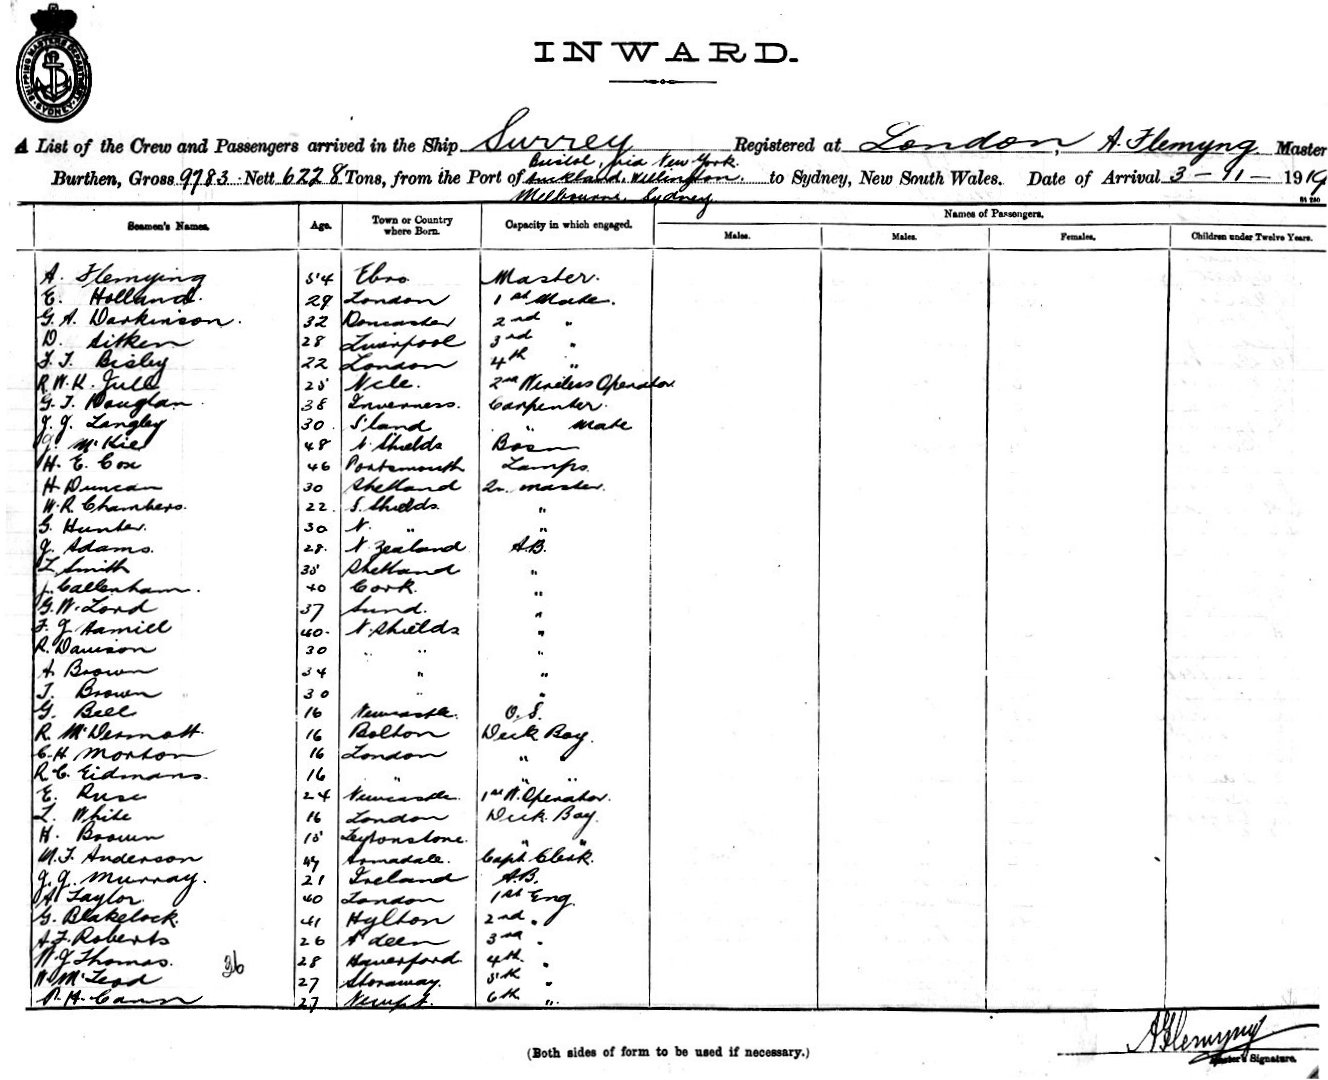 SHIPPING MASTERS DEPARTMENT SYDNEY
INWARD.
A List of the Crew and Passengers arrived in the Ship Surrey Registered at London, A. Flemyng Master
Bristol, via New York.
Burthen, Gross 9783 Nett 6228 Tons, from the Port of Auckland, Wellington. to Sydney, New South Wales. Date of Arrival 3 - 11 - 1919
Melbourne, Sydney
Seamen's Names. Age. Town or Country where Born. Capacity in which engaged. Names of Passengers.
Males. Males. Females. Children under Twelve Years.
A. Flemying 54 Ebro Master.
E. Holland. 29 London 1st Mate.
G. A. Darkinson. 32 Doncaster 2nd "
D. Aitken 28 Liverpool 3rd "
F. T. Bisley 22 London 4th "
R. W. K. 25 N'cle. 2nd Wireless Operator
G. T. Douglan 38 Inverness. Carpenter.
J. J. Langley 30 S'land " Mate
J. McKie 48 N. Shields Bosn
H. E. Cox 46 Portsmouth Lamps
H Duncan 30 Shetland Qr. master.
W. R. Chambers. 22 S. Shields "
G. Hunter. 30 N. " "
J. Adams. 28 N. Zealand A.B.
L Smith 35 Shetland "
J. Callenham. 40 Cork. "
G. W. Lord 37 Sund. "
F. J. Hamill 40 N. Shields "
R. Davison 30 " " "
A. Brown 34 " "
T. Brown 30 " "
G. Bell 16 Newcastle. O.S.
R. McDermott. 16 Bolton Deck Boy.
C. H. Morton 16 London "
R. C. Eidmans. 16 " " "
E. Ruse 24 Newcastle. 1st W. Operator.
L. White 16 London Deck Boy.
H. Brown 15 Leytonstone. " "
M. F. Anderson 49 Armadale. Capt. Clerk.
J. J. Murray. 21 Ireland A.B.
A Taylor. 40 London 1st Eng.
G. Blakelock. 41 Hylton 2nd "
A F. Roberts 26 A'deen 3rd "
W. J. Thomas. 36 28 Haverford 4th "
W. McLeod 27 Stornaway. 5th "
P. H. Cann 27 Newpt. 6th "
A Flemyng
(Both sides of form to be used if necessary.) Master's Signature.